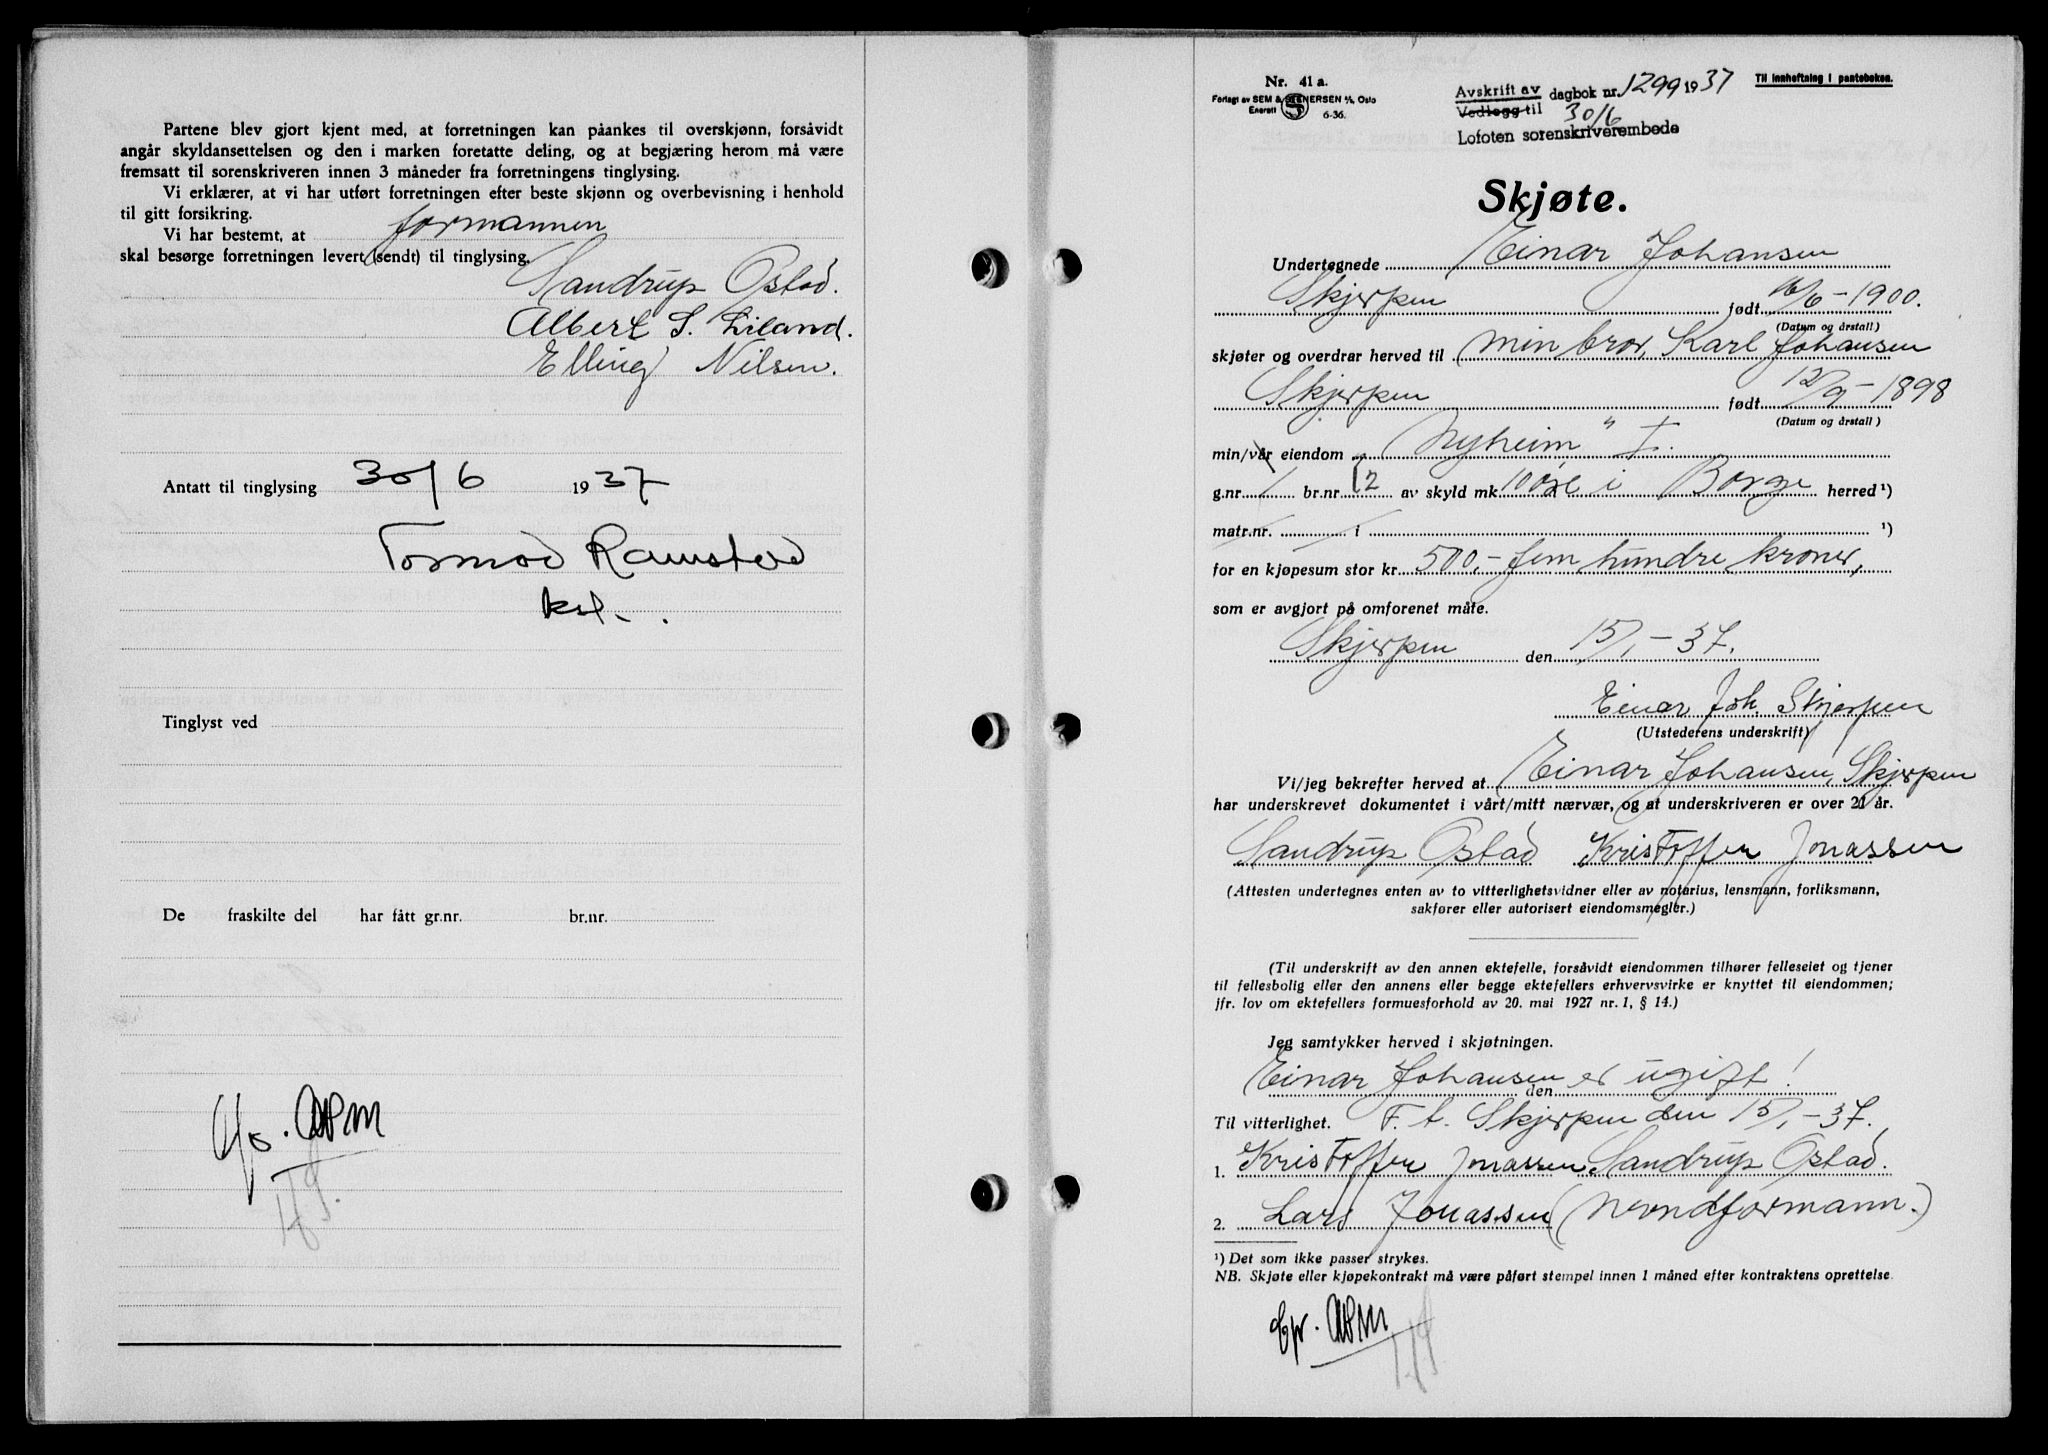 Partene blev gjort kjent med, at forretningen kan påankes til overskjønn, forsåvidt
angår skyldansettelsen og den i marken foretatte deling, og at begjæring herom må være
fremsatt til sorenskriveren innen 3 måneder fra forretningens tinglysing.
Vi erklærer, at vi har utført forretningen efter beste skjønn og overbevisning i henhold
til gitt forsikring.
Vi har bestemt, at formannen
skal besørge forretningen levert (sendt) til tinglysing.
Sandrup Ostad.
Albert S. Liland.
Elling Nilsen.
Antatt til tinglysing 30/6 1937
Tormod Ramstad
kst.
Tinglyst ved
De fraskilte del har fått gr.nr. br.nr.
Nr. 41 a.
Forlagt av SEM & STENERSEN A/S, Oslo
Enerett 6-36.
Avskrift av dagbok nr. 1299 1937
Vedlegg til 30/6
Lofoten sorenskriverembede
Til innheftning i panteboken.
Skjøte.
Undertegnede Einar Johansen
Skjerpen født 16/6-1900.
(Datum og årstall)
skjøter og overdrar herved til min bror, Karl Johansen
Skjerpen født 12/9-1898
(Datum og årstall)
min/vår eiendom „Nyheim" I.
g.nr. 1 br.nr. 12 av skyld mk 10 øre i Borge herred ¹)
matr.nr. / i / ¹)
for en kjøpesum stor kr. 500,- fem hundre kroner,
som er avgjort på omforenet måte.
Skjerpen den 15/1-37.
Einar Joh. Skjerpen
(Utstederens underskrift)
Vi/jeg bekrefter herved at Einar Johansen, Skjerpen
har underskrevet dokumentet i vårt/mitt nærvær, og at underskriveren er over 21 år.
Sandrup Ostad Kristoffer Jonassen
(Attesten undertegnes enten av to vitterlighetsvidner eller av notarius, lensmann, forliksmann,
sakfører eller autorisert eiendomsmegler.)
(Til underskrift av den annen ektefelle, forsåvidt eiendommen tilhører felleseiet og tjener
til fellesbolig eller den annens eller begge ektefellers erhvervsvirke er knyttet til eiendommen;
jfr. lov om ektefellers formuesforhold av 20. mai 1927 nr. 1, § 14.)
Jeg samtykker herved i skjøtningen.
Einar Johansen er ugift!
den
Til vitterlighet. F. t. Skjerpen den 15/1-37.
1. Kristoffer Jonassen Sandrup Ostad.
2. Lars Jonassen (nevndformann.)
¹) Det som ikke passer strykes.
NB. Skjøte eller kjøpekontrakt må være påført stempel innen 1 måned efter kontraktens oprettelse.